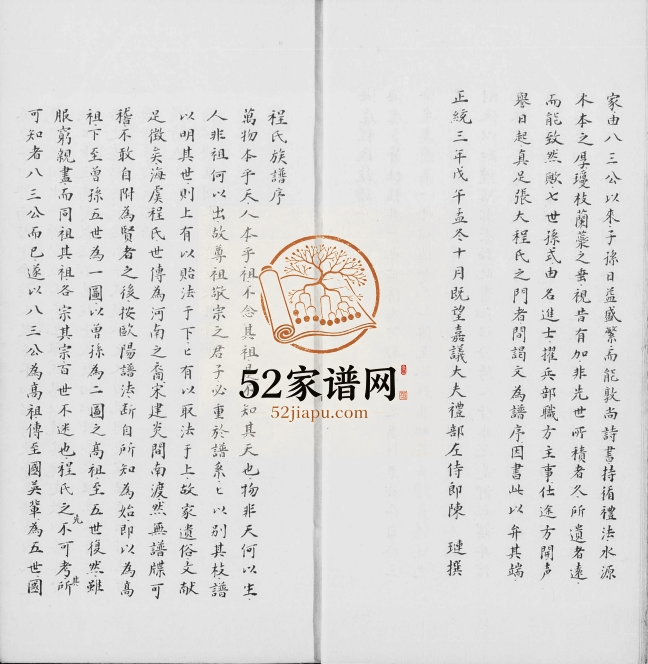 家由八三公以來子孫日益盛繁而能敦尚詩書持循禮法水源
木本之厚瓊枝蘭藁之奎視昔有加非先世所積者久所遺者遠
而能致然歟七世孫式由名進士擢兵部職方主事仕途方開声
譽日起真足張大程氏之門者問謁文為譜序因書此以弁其端
正統三年戊午孟冬十月既望嘉議大夫禮部左侍郎陳璉撰
程氏族譜序
萬物本乎天人本乎祖不念其祖知其天也物非天何以生
人非祖何以出故尊祖敬宗之君子必重於譜系〻以別其枝譜
以明其世則上有以貽法于下〻有以取法于上故家遺俗文献
足徵矣海虞程氏世傳為河南之裔宋建炎間南渡然無譜牒可
稽不敢自附為賢者之後按歐陽譜法断自所知為始即以為高
祖下至曾孫五世為一圖以曾孫為二圖之高祖至五世復然雖
服窮親盡而同祖其祖各宗其宗百世不迷也程氏之先不可考所
其可知者八三公而已遂以八三公為高祖傳至國英輩為五世國
52家谱网
52jiapu.com